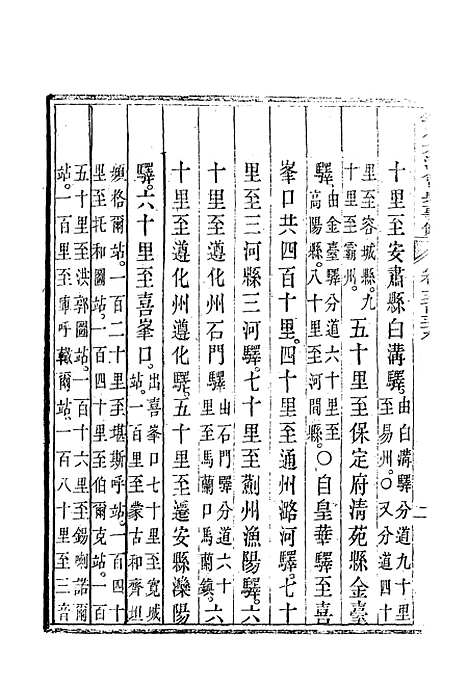 十里至安肅縣白溝驛。由白溝驛分道九十里至易州。〇又分道四十
里至容城縣。九十里至霸州。五十里至保定府清苑縣金臺
驛。由金臺驛分道六十里至高陽縣。八十里至河間縣。〇自皇華驛至喜
峯口共四百十里。四十里至通州潞河驛。七十
里至三河縣三河驛。七十里至薊州漁陽驛。六
十里至遵化州石門驛由石門驛分道六十里至馬蘭口馬蘭鎮。六
十里至遵化州遵化驛。五十里至遷安縣灤陽
驛。六十里至喜峯口。出喜峯口七十里至寬城站。一百里至蒙古和齊坦
頻格爾站。一百二十里至堪斯呼站。一百四十里至托和圖站。一百四十里至伯爾克站。一百
五十里至洪郭圖站。一百十六里至錫喇諾爾站。一百里至庫呼轍爾站。一百八十里至三音